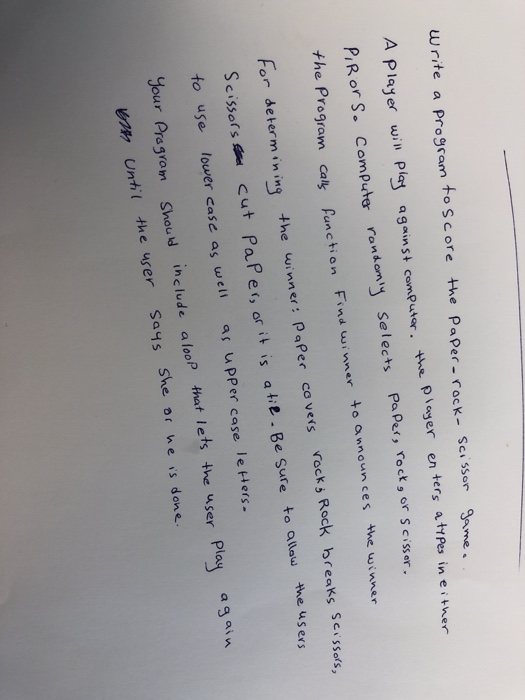 Write a program to score the paper-rock-scissor game.
A player will play against computer. the player enters atypes in either
P, R or S. Computer randomly selects paper, rock, or scissor.
the Program calls function Find winner to announces the winner
For determining the winner: paper covers rock; Rock breaks scissors,
Scissors cut papers, or it is a tie. Be sure to allow the users
to use lower case as well as upper case letters.
your Program should include a loop that lets the user play again
until the user says she or he is done.